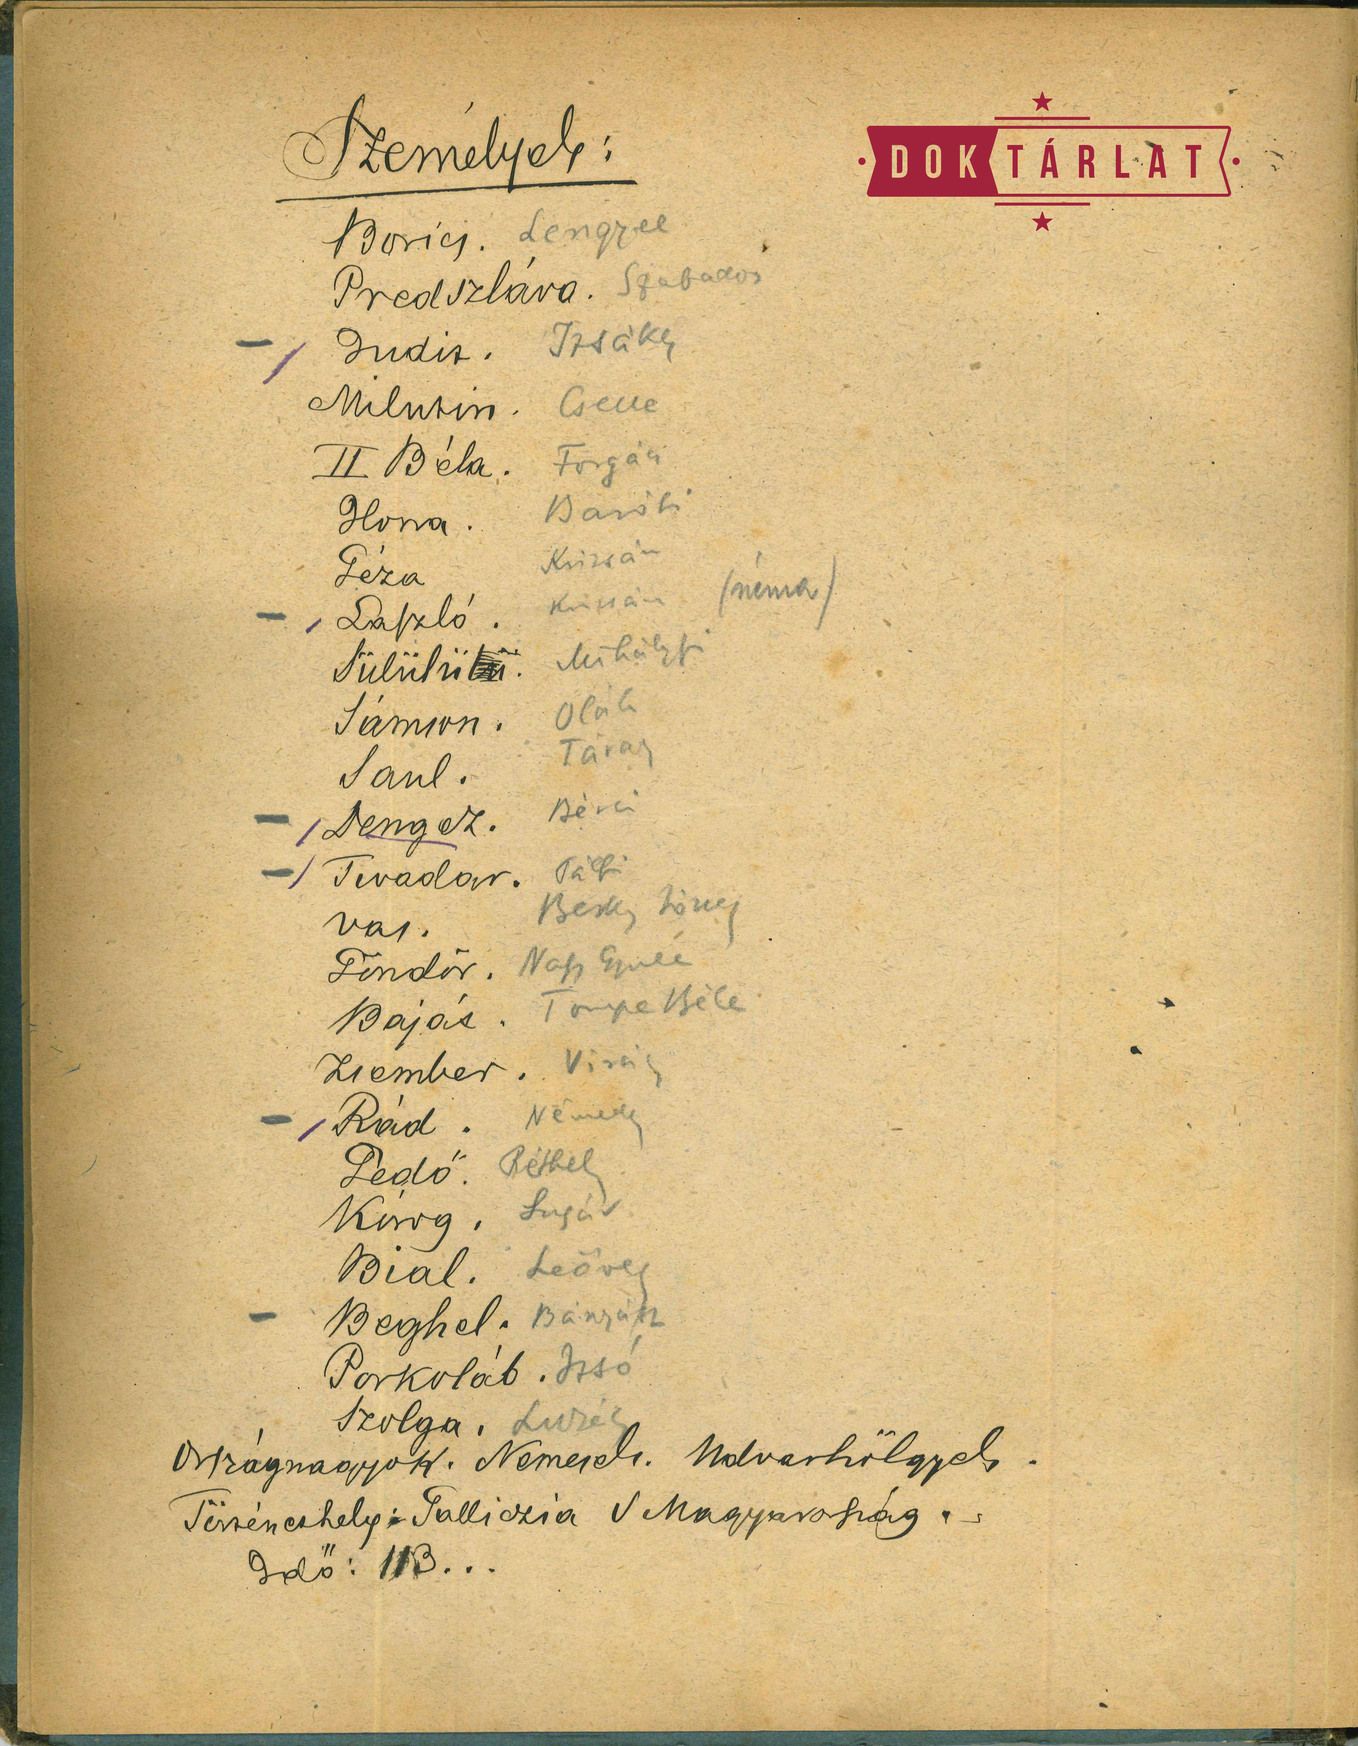 DOKTÁRLAT
Személyek:
Borics. Lengyel
Predszláva. Szabados
Judit. Izsáky
Milutin. Cselle
II Béla. Forgács
Ilona. Baróti
Géza Krizsán
László. Krizsán (néma)
Sülülü. Mihályfi
Sámson. Oláh
Saul. Táray
Dengez. Bérci
Tivadar. Pálfi
Vas.
Göndör. Nagy Gyula
Baját. Tompa Béla
Zsember. Virág
Rád. Némedy
Pedő. Péthely
Kórog. Sugár
Bial. Leövey
Beghel. Bányász
Porkoláb. Izsó
Szolga.
Országnagyok. Nemesek. Udvarhölgyek.
Történethely: Galliczia s Magyarország.
Idő: 113...